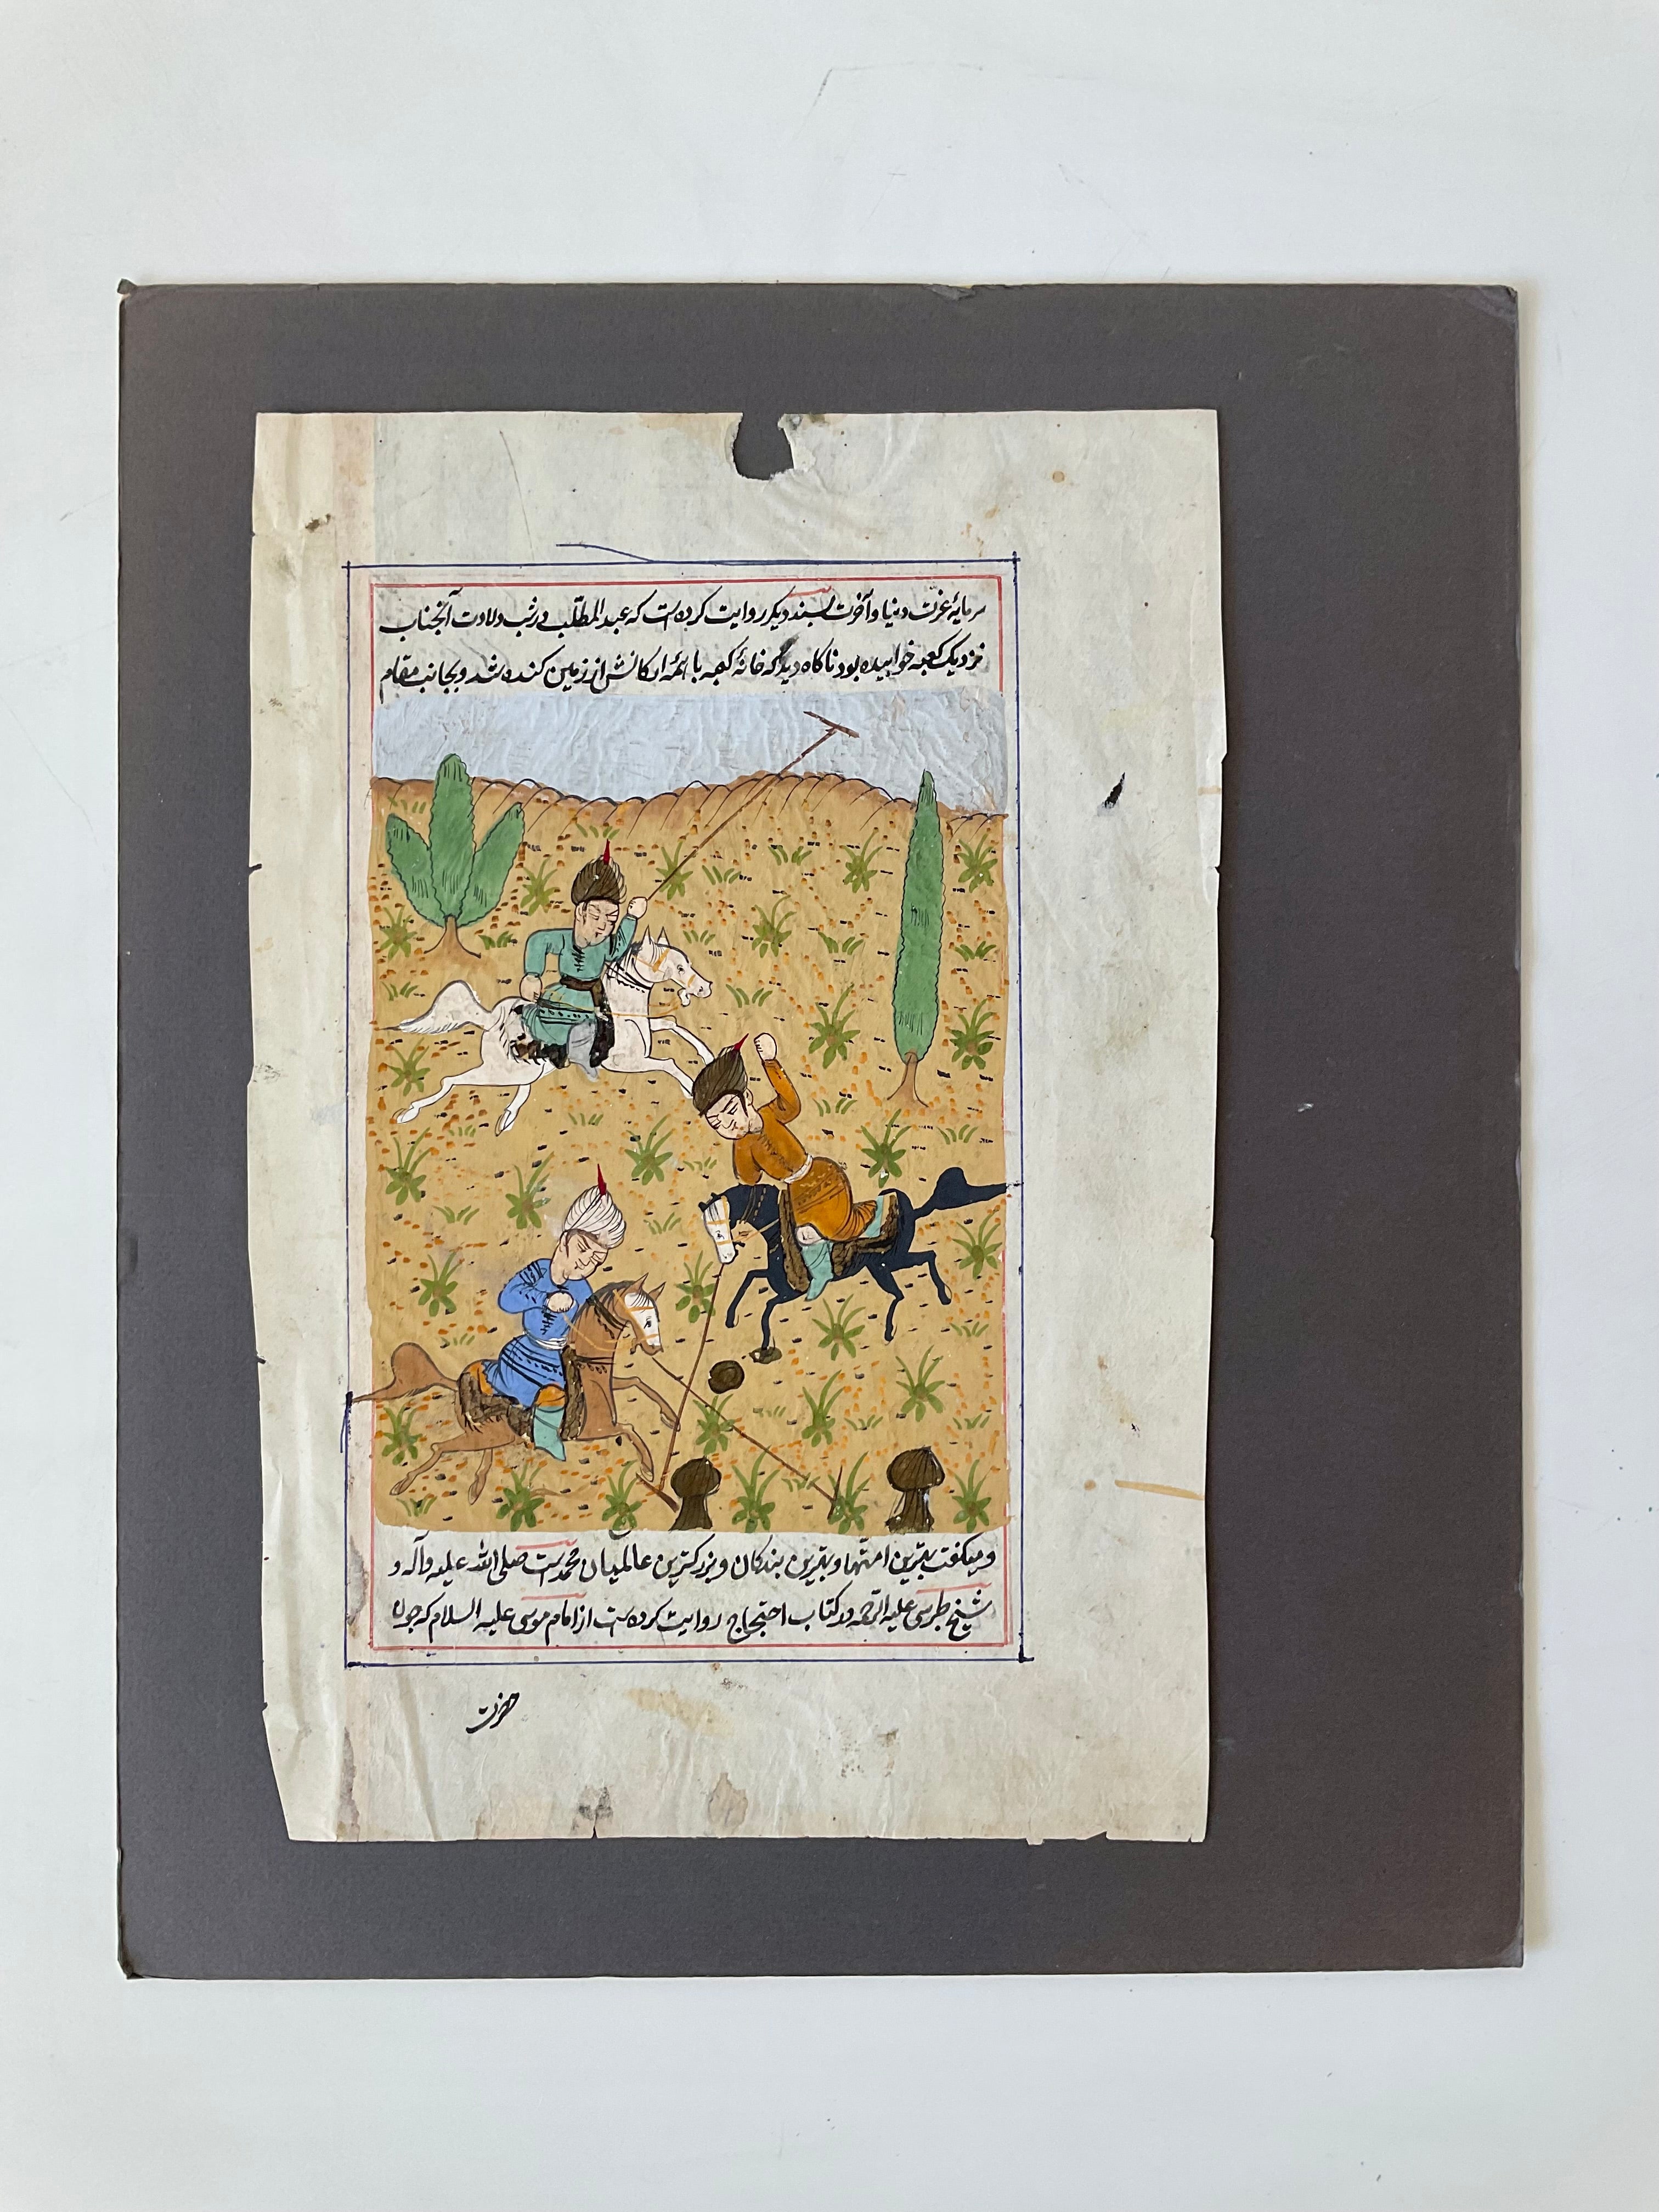 سرمایهٔ عزت دنیا و آخرت بسند دیکر روایت کرده است که عبد المطلب در شب ولادت آنجناب
نزدیک کعبه خوابیده بود ناکاه دید که خانهٔ کعبه با همهٔ ارکانش از زمین کنده شد و بجانب مقام
و میکفت بهترین امتها و بهترین بندکان و بزرکترین عالمیان محمد است صلی الله علیه و آله و
شیخ طبرسی علیه الرحمه در کتاب احتجاج روایت کرده است از امام موسی علیه السلام که چون
حضرت